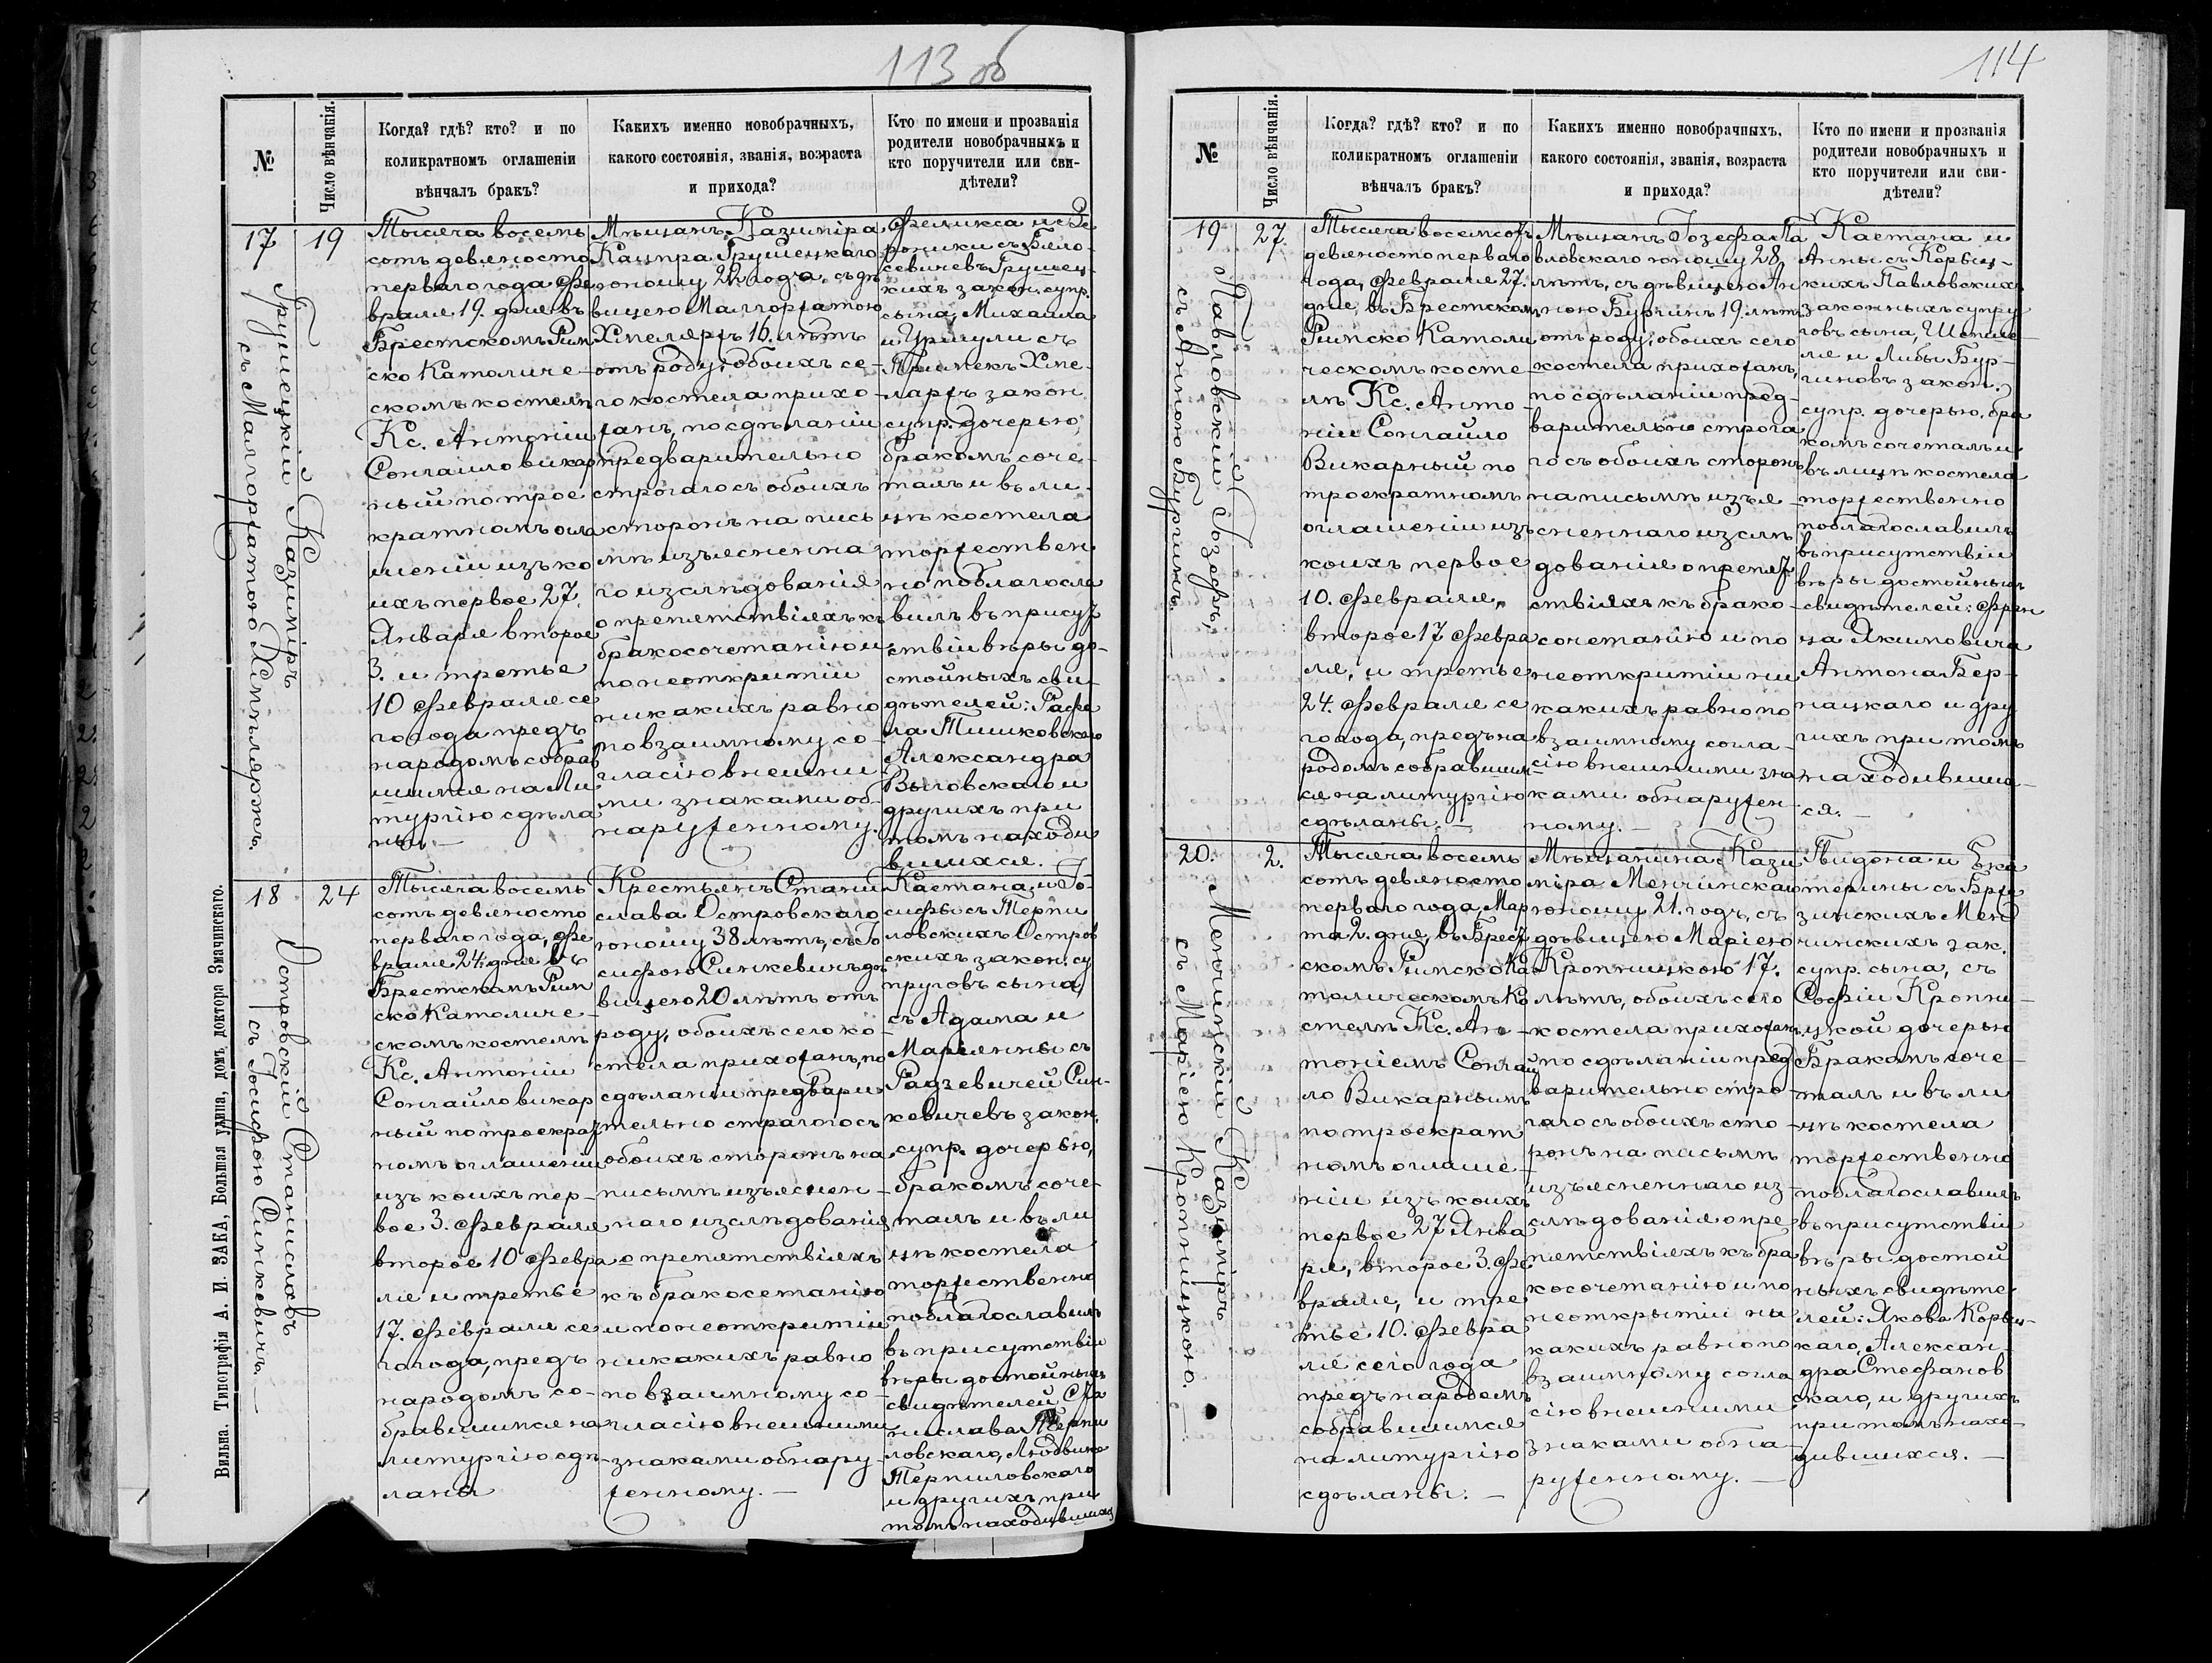 113 об
№
Число вѣнчанія.
Когда? гдѣ? кто? и по
коликратномъ оглашеніи
вѣнчалъ бракъ?
Какихъ именно новобрачныхъ,
какого состоянія, званія, возраста
и прихода?
Кто по имени и прозванія
родители новобрачныхъ и
кто поручители или сви-
дѣтели?
17
Грушецкій Казиміръ
съ Малгоржатою Хмпляржъ.
19
Тысяча восемь
сотъ девяносто
перваго года Фе
враля 19. дня въ
Брестскомъ Рим
ско Католиче-
скомъ костелѣ
Кс. Антоній
Сонгайло викар
ный по трое
кратномъ огла
шеніи изъ ко
ихъ первое 27.
Января второе
3. и третье
10 Февраля се
го года предъ
народомъ собрав
шимся на Ли
тургію сдѣла
ны —
Мѣщанъ Казиміра
Каспра Грушецкаго
юношу 22 года, съ дѣ
вицею Малгоржатою
Хмелярж 16. лѣтъ
отъ роду, обоихъ се-
го костела прихо-
жанъ, по сдѣланіи
предварительно
строгаго съ обоихъ
сторонъ на пись
мѣ изъясненна
го изслѣдованія
о препятствіяхъ къ
бракосочетанію и
по неоткритіи
никакихъ равно
по взаимному со-
гласію внешни
ми знаками об-
наруженному.
Феликса и Ве
роники съ Бѣло-
севичевъ Грушец-
кихъ закон. супр.
сына, Михаила
и Уршули съ
Примекъ Хме-
ляржъ закон
супр. дочерью,
бракомъ соче-
талъ и въ ли-
цѣ костела
торжествен
но поблагосла
вилъ въ присут
ствіи вѣры до-
стойныхъ сви-
дѣтелей: Рафа
ла Тишковскаго
Александра
Выговскаго и
другихъ при
томъ находи
вшихся.
18
Островскій Станиславъ
съ Іосифою Синкевичъ. —
24
Тысяча восемь
сотъ девяносто
перваго года, Фе
враля 24. дня въ
Брестскомъ Рим
ско Католиче-
скомъ костелѣ
Кс. Антоній
Сонгайло викар
ный по троекрат
номъ оглашеніи
изъ коихъ пер-
вое 3. Февраля
второе 10 Февра
ля и третье
17. Февраля се
го года, предъ
народомъ со-
бравшимся на
литургію сдѣ-
ланы
Крестьянъ Стани
слава Островскаго
юношу 38 лѣтъ, съ Іо
сифою Синкевичъ дѣ
вицею 20 лѣтъ отъ
роду, обоихъ сего ко-
стела прихожанъ, по
сдѣланіи предвари
тельно строгого съ
обоихъ сторонъ на
письмѣ изъяснен-
наго изслѣдованія
о препятствіяхъ
къ бракосетанію
и по неоткритіи
никакихъ равно
по взаимному со-
гласію внешними
знаками обнару-
женному. —
Каетана и Іо-
сифы съ Терпи
ловскихъ Остров
скихъ закон. су
пруговъ сына,
съ Адама и
Маріянны съ
Радзевичей Син-
кевичевъ закон.
супр. дочерью,
бракомъ соче-
талъ и въ ли
цѣ костела
торжественно
поблагославилъ
въ присутствіи
вѣры достойныхъ
свидѣтелей Ста
нислава Терпи
ловскаго, Людвика
Терпиловскаго
и другихъ при
томъ находившихся
Вильна. Типографія А. И. ЗАКА, Большая улица, домъ, доктора Змачинскаго.
114
№
Число вѣнчанія.
Когда? гдѣ? кто? и по
коликратномъ оглашеніи
вѣнчалъ бракъ?
Какихъ именно новобрачныхъ,
какого состоянія, званія, возраста
и прихода?
Кто по имени и прозванія
родители новобрачныхъ и
кто поручители или сви-
дѣтели?
19
Павловскій Іозефъ,
съ Анною Бургинъ.
27.
Тысяча восемсотъ
девяносто перваго
года, Февраля 27.
дня, въ Брестском
Римско Католи
ческомъ косте
лѣ Кс. Анто-
ній Сонгайло
Викарный по
троекратномъ
оглашеніи изъ
коихъ первое
10. Февраля,
второе 17 Февра
ля, и третье
24. Февраля се
го года, предъ на
родомъ собравшим-
ся на литургію
сдѣланы. —
Мѣщанъ Іозефа Па
вловскаго юношу 28
лѣтъ, съ дѣвицею Ан
ною Бургинъ 19. лѣтъ
отъ роду, обоихъ сего
костела прихожанъ,
по сдѣланіи пред-
варительно строга
го съ обоихъ сторонъ
на письмѣ изъя-
сненнаго изслѣ
дованія о препят
ствіяхъ къ брако-
сочетанію и по
неоткритіи ни
какихъ равно по
взаимному согла-
сію внешними зна
ками обнаружен-
ному. —
Каетана и
Анны съ Корвец-
кихъ Павловскихъ
законныхъ супру
говъ сына,
ля и Либы Бур-
гиновъ закон.
супр. дочерью, бра
комъ сочеталъ и
въ лицѣ костела
торжественно
поблагославилъ
въ присутствіи
вѣры достойныхъ
свидѣтелей: Фран
ца Якимовича
Антона Бер-
нацкаго и дру
гихъ при томъ
находивших-
ся. —
20.
Менчинскій Казиміръ
съ Маріею Кропницкою. —
2.
Тысяча восемь
сотъ девяносто
перваго года, Мар
та 2. дня, въ Брест
скомъ Римско Ка
толическомъ Ко
стелѣ Кс. Ан-
тоніемъ Сонгай
ло Викарнымъ
по троекрат
номъ оглаше-
ніи изъ коихъ
первое 27 Янва
ря, второе 3. Фе
враля, и тре
тье 10. Февра
ля сего года
предъ народомъ
собравшимся
на литургію
сдѣланы. —
Мѣщанина Кази
міра Менчинскаго
юношу 21. годъ, съ
дѣвицею Маріею
Кропницкою 17.
лѣтъ, обоихъ сего
костела прихожанъ
по сдѣланіи пред
варительно стро-
гаго съ обоихъ сто-
ронъ на письмѣ
изъясненнаго из-
слѣдованія о пре-
пятствіяхъ къ бра
косочетанію и по
неоткрытіи ни
какихъ равно по
взаимному согла
сію внешними
знаками обна-
руженному. —
Гвидона и Ека
терины съ Бржe
зинскихъ Мен
чинскихъ зак.
супр. сына, съ
Софіи Кропни-
цкой дочерью
Бракомъ соче-
талъ и въ ли
цѣ костела
торжественно
поблагославилъ
въ присутствіи
вѣры достой
ныхъ свидѣте-
лей: Якова Корвец-
каго, Алексан-
дра Стефанов
скаго, и другихъ
при томъ нахо-
дившихся. —